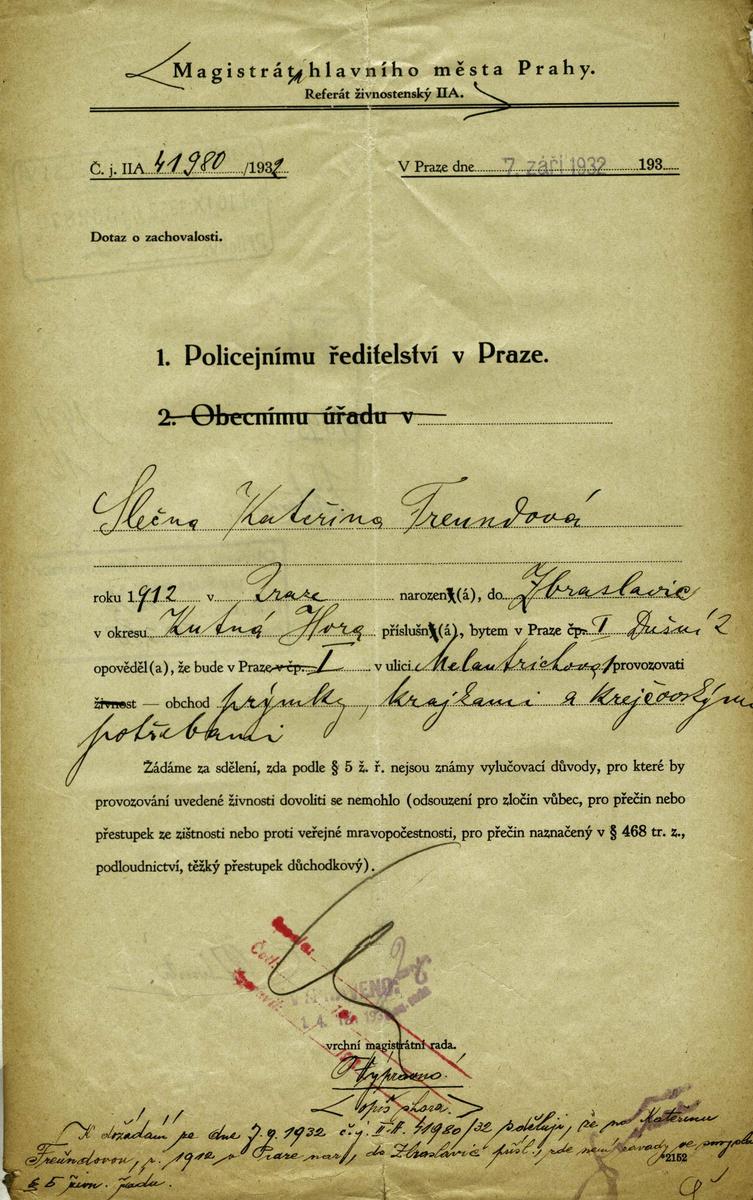 Magistrát hlavního města Prahy.
Referát živnostenský IIA.
Č. j. IIA 41980 /1932
V Praze dne 7. září 1932 193
Dotaz o zachovalosti.
1. Policejnímu ředitelství v Praze.
2. Obecnímu úřadu v
Slečna Kateřina Freundová
roku 1912 v Praze narozen(á), do Zbraslavic
v okresu Kutná Hora příslušn(á), bytem v Praze čp. I Dušní 2
opověděl(a), že bude v Praze v čp. I v ulici Melantrichova provozovati
živnost — obchod prýmky, krajkami a krejčovskými
potřebami
Žádáme za sdělení, zda podle § 5 ž. ř. nejsou známy vylučovací důvody, pro které by
provozování uvedené živnosti dovoliti se nemohlo (odsouzení pro zločin vůbec, pro přečin nebo
přestupek ze zištnosti nebo proti veřejné mravopočestnosti, pro přečin naznačený v § 468 tr. z.,
podloudnictví, těžký přestupek důchodkový).
vrchní magistrátní rada.
Vypraveno!
opis shora.
K dožádání ze dne 7.9.1932 č.j. II.A. 41980/32 sděluji, že na Kateřinu
Freundovou, r. 1912 v Praze nar., do Zbraslavic přísl., zde není závady ve smyslu
§ 5 živn. řádu.
2152